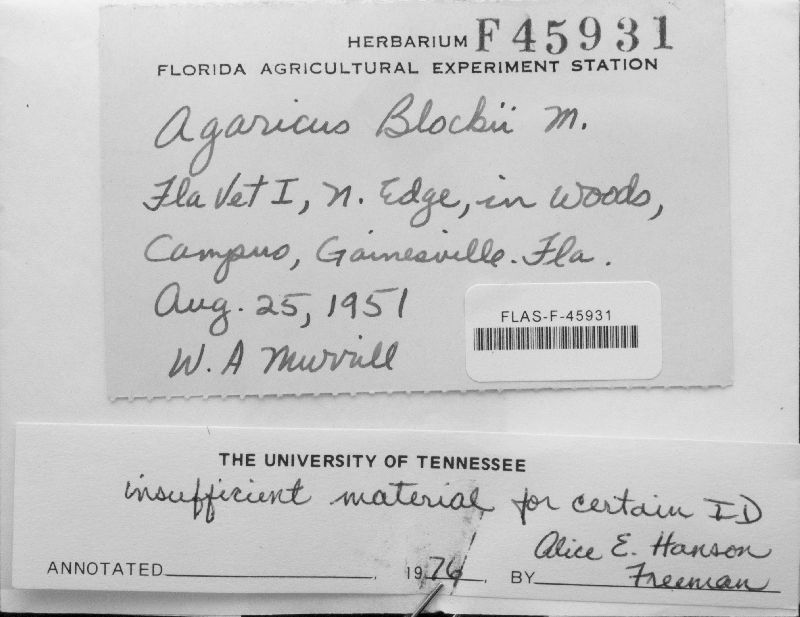 HERBARIUM F45931
FLORIDA AGRICULTURAL EXPERIMENT STATION
Agaricus Blockii M.
Fla Vet I, N. Edge, in woods,
Campus, Gainesville. Fla.
Aug. 25, 1951
W. A Murrill
FLAS-F-45931
THE UNIVERSITY OF TENNESSEE
insufficient material for certain ID
Alice E. Hanson
ANNOTATED , 1976, BY Freeman